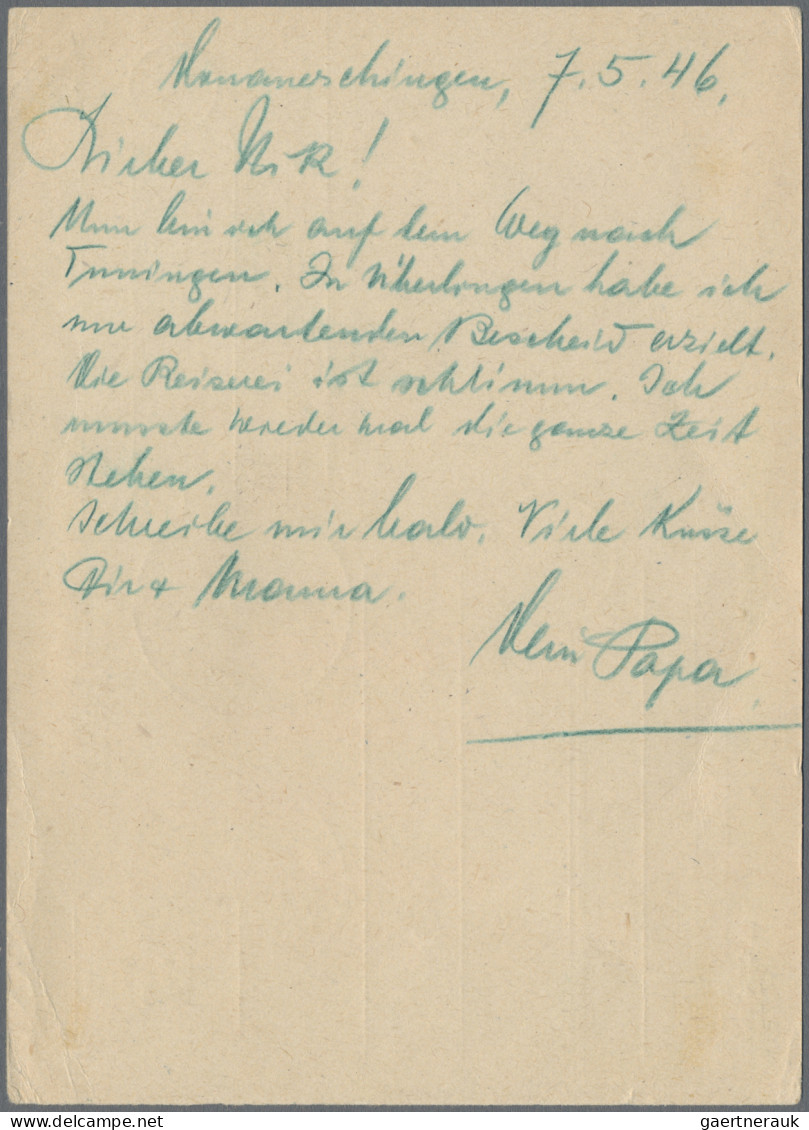 Donaueschingen, 7.5.46.
Lieber
Nun bin ich auf dem Weg nach
Tuningen. In Überlingen habe ich
nur abwartenden Bescheid erzielt.
Die Reiserei ist schlimm. Ich
musste wieder mal die ganze Zeit
stehen.
Schreibe mir bald. Viele Küsse
Dir + Mama.
Dein Papa.
gaertnerauk